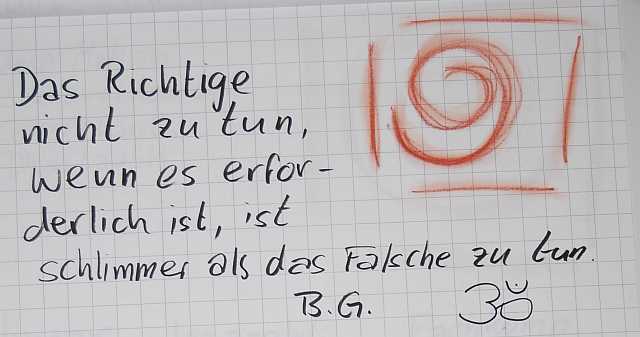 Das Richtige
nicht zu tun,
wenn es erfor-
derlich ist, ist
schlimmer als das Falsche zu tun.
B.G.